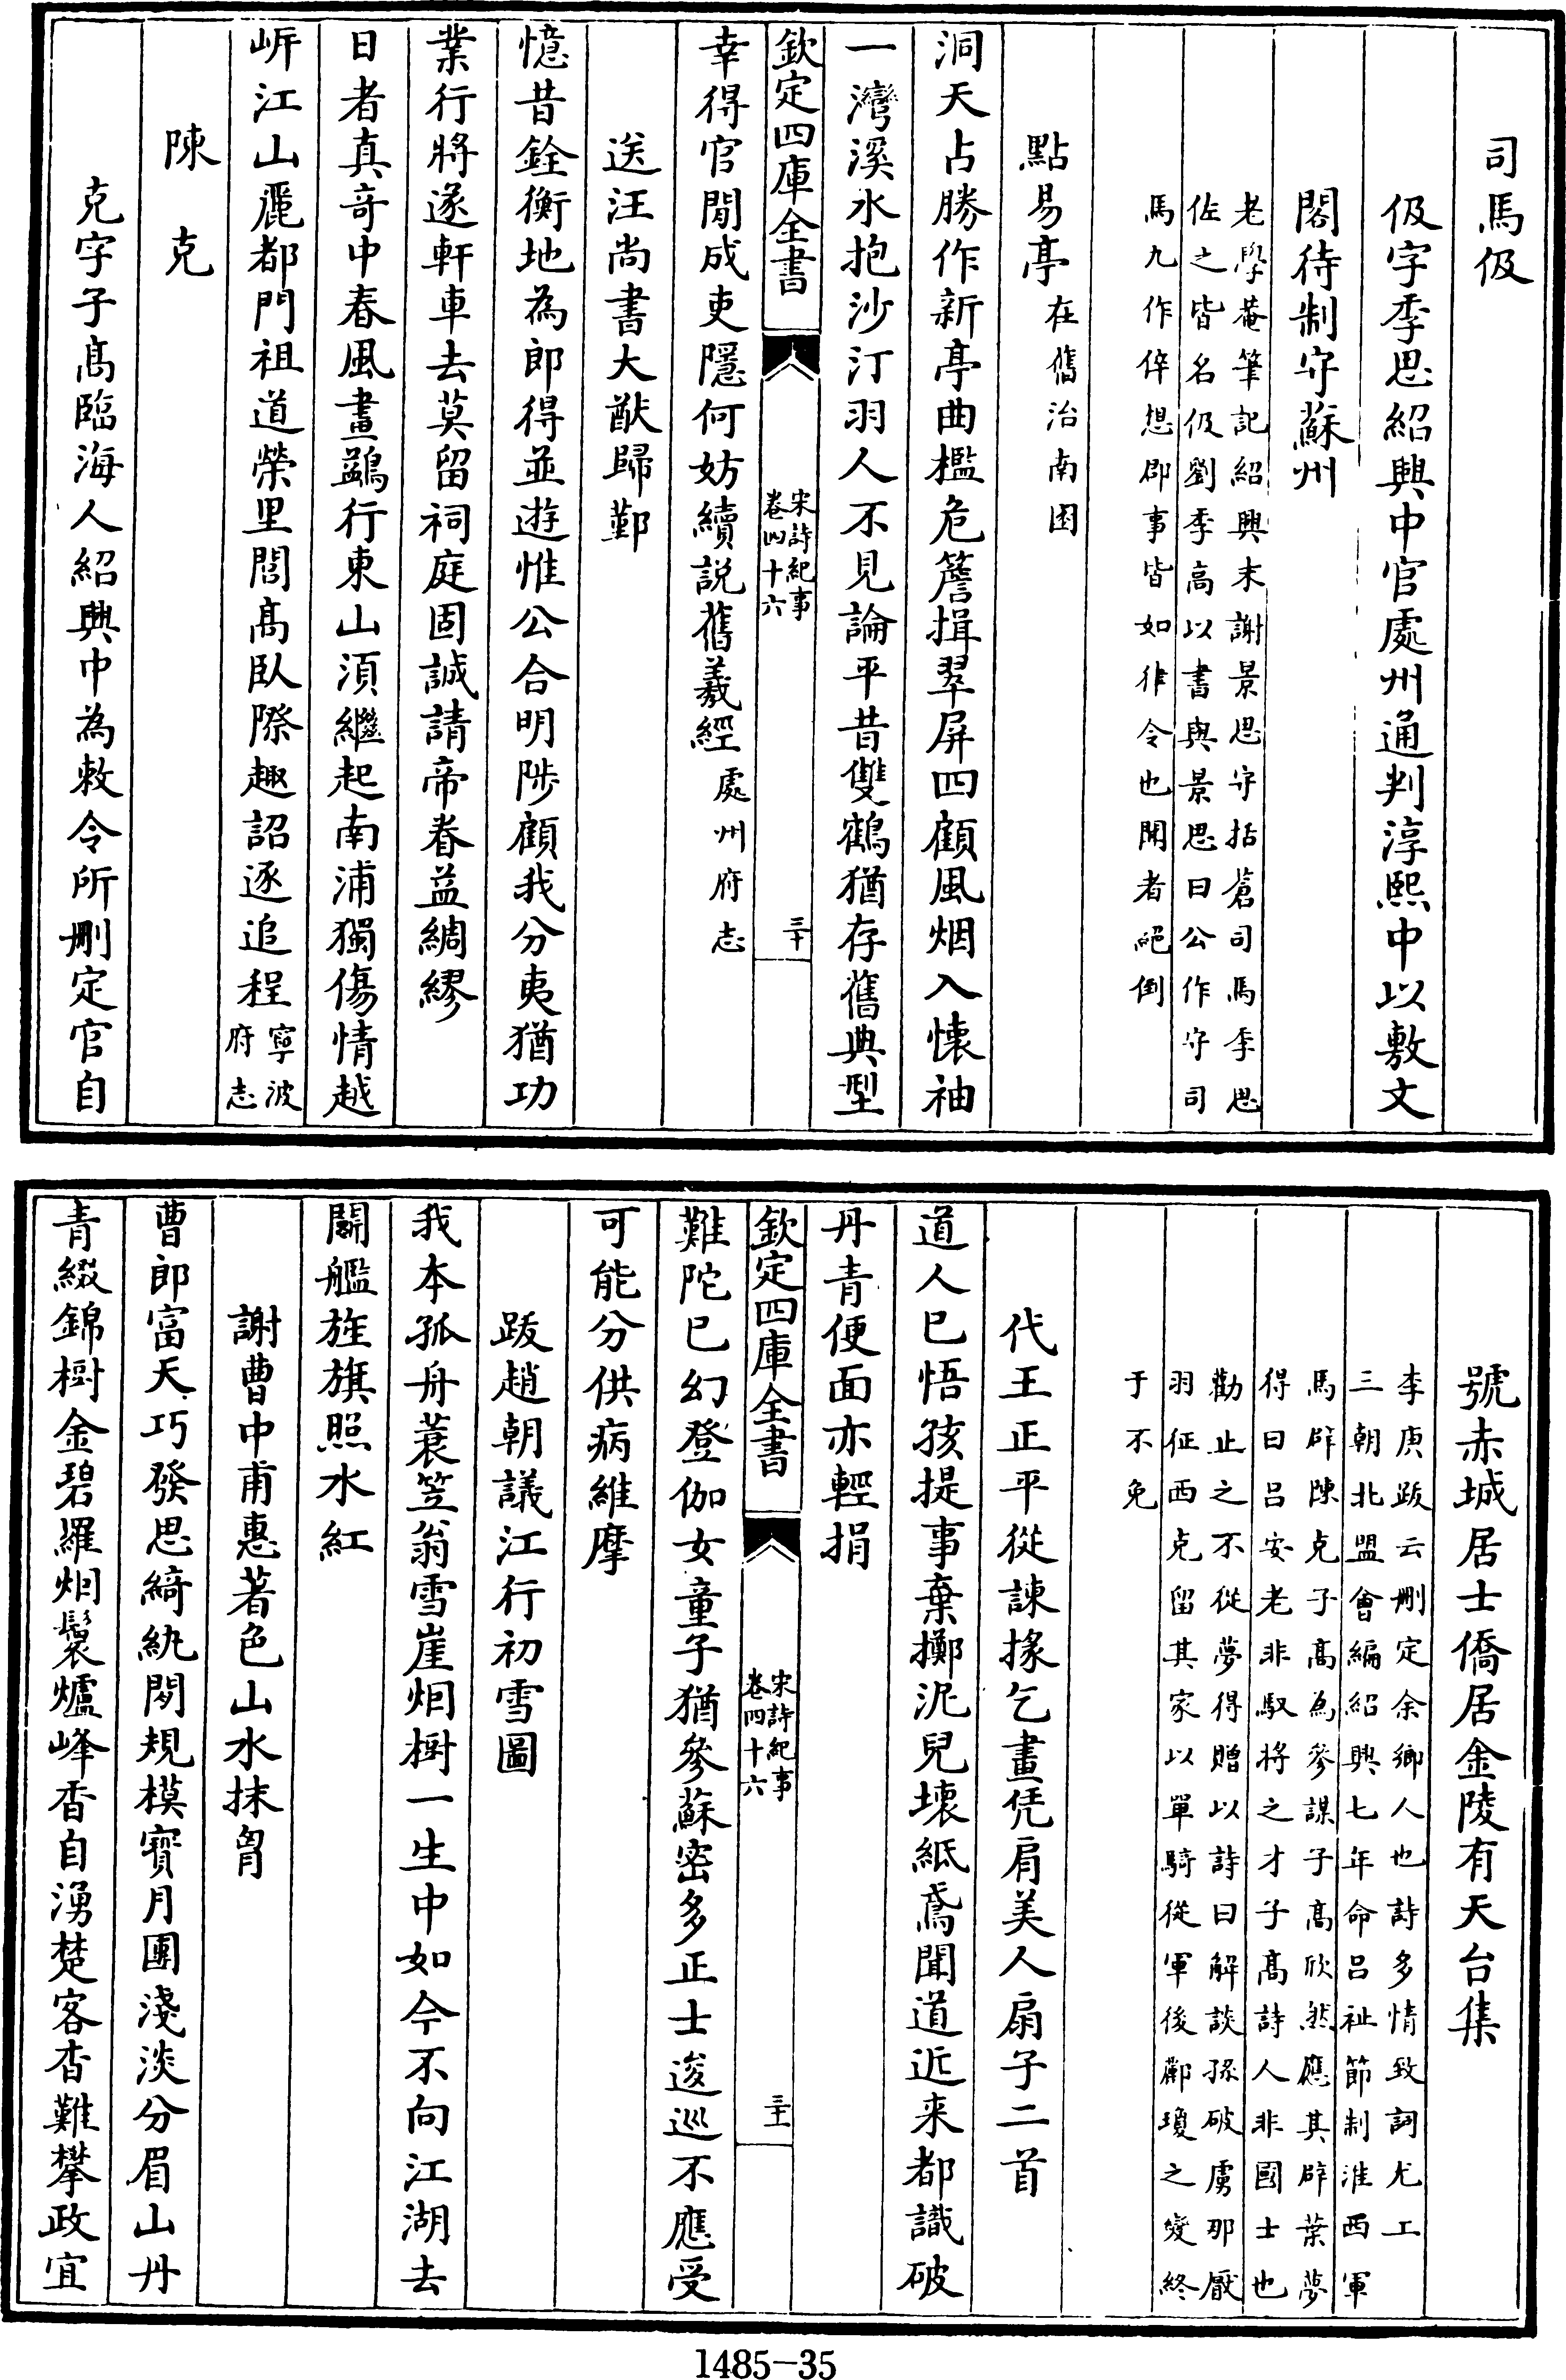 司馬伋
伋字季思紹興中官處州通判淳熙中以敷文
閣待制守蘇州
老學菴筆記紹興末謝景思守括蒼司馬季思
佐之皆名伋劉季高以書與景思曰公作守司
馬九作倅想郡事皆如律令也聞者絕倒
點易亭在舊治南囿
洞天占勝作新亭曲檻危簷揖翠屏四顧風烟入懷袖
一灣溪水抱沙汀羽人不見論平昔雙鶴猶存舊典型
欽定四庫全書
宋詩紀事
卷四十六
三十
幸得官閒成吏隱何妨續說舊羲經處州府志
送汪尚書大猷歸鄞
憶昔銓衡地為郎得並遊惟公合明陟顧我分夷猶功
業行將遂軒車去莫留祠庭固誠請帝眷益綢繆
日者真奇中春風畫鷁行東山須繼起南浦獨傷情越
岍江山麗都門祖道榮里閭髙臥際趣詔逐追程寧波
府志
陳克
克字子髙臨海人紹興中為敕令所刪定官自
號赤城居士僑居金陵有天台集
李庚跋云刪定余鄉人也詩多情致詞尤工
三朝北盟會編紹興七年命呂祉節制淮西軍
馬辟陳克子髙為參謀子髙欣然應其辟葉夢
得曰呂安老非馭將之才子髙詩人非國士也
勸止之不從夢得贈以詩曰解談孫破虜那厭
羽征西克留其家以單騎從軍後酈瓊之變終
于不免
代王正平從諫掾乞畫凭肩美人扇子二首
道人已悟孩提事棄擲泥兒壞紙鳶聞道近来都識破
丹青便面亦輕捐
欽定四庫全書
宋詩紀事
卷四十六
三十一
難陀已幻登伽女童子猶參蘇密多正士逡巡不應受
可能分供病維摩
跋趙朝議江行初雪圖
我本孤舟蓑笠翁雪崖烟樹一生中如今不向江湖去
鬭艦旌旗照水紅
謝曹中甫惠著色山水抹胷
曹郎富天巧發思綺紈閒規模寳月團淺淡分眉山丹
青綴錦樹金碧羅烟鬟爐峰香自湧楚客杳難攀政宜
1485-35